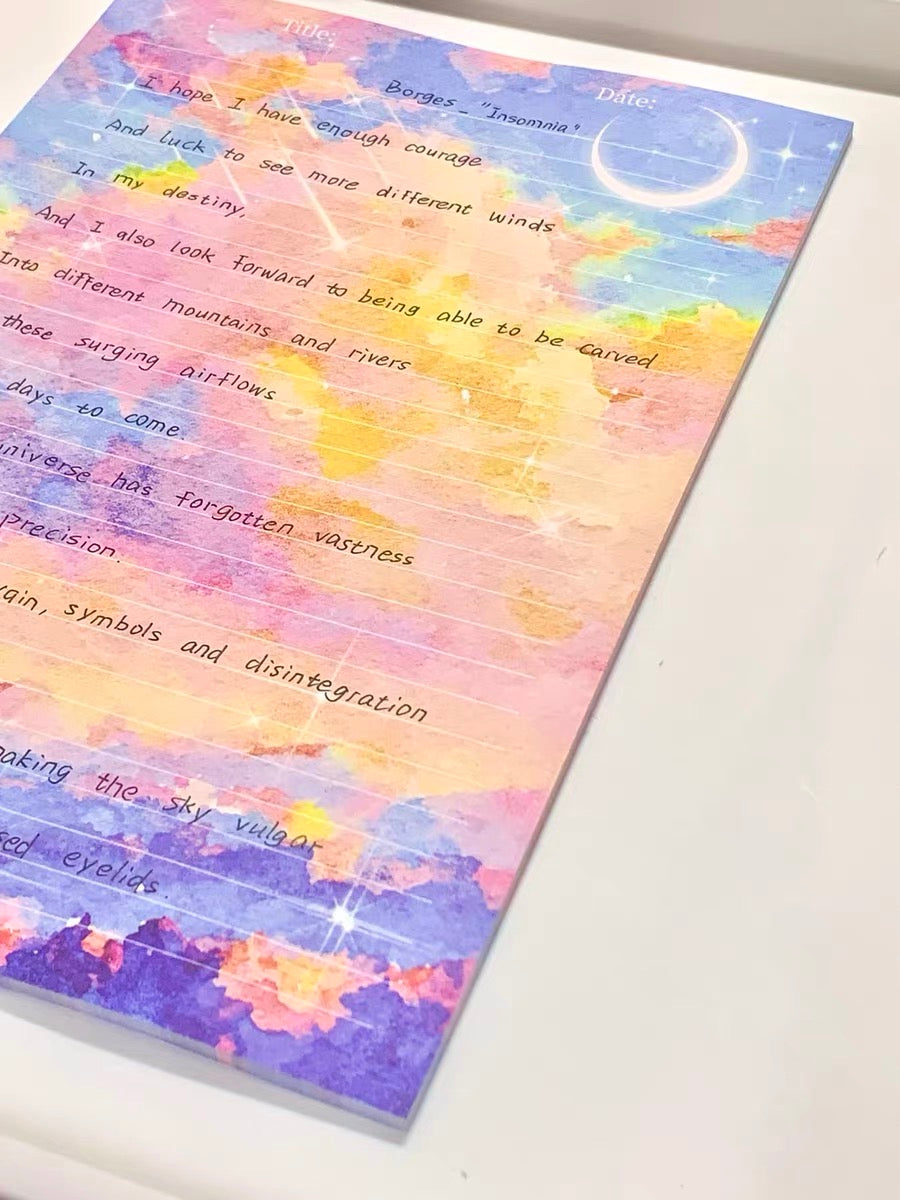 Title:
Date:
Borges - "Insomnia"
I hope I have enough courage
And luck to see more different winds
In my destiny,
And I also look forward to being able to be carved
Into different mountains and rivers
these surging airflows
days to come.
has forgotten vastness
precision.
symbols and disintegration
the sky vulgar
eyelids.